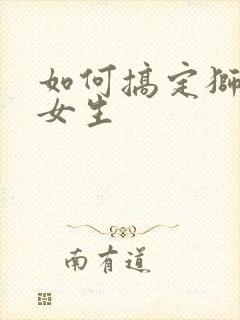 如何搞定狮
女生
南有道